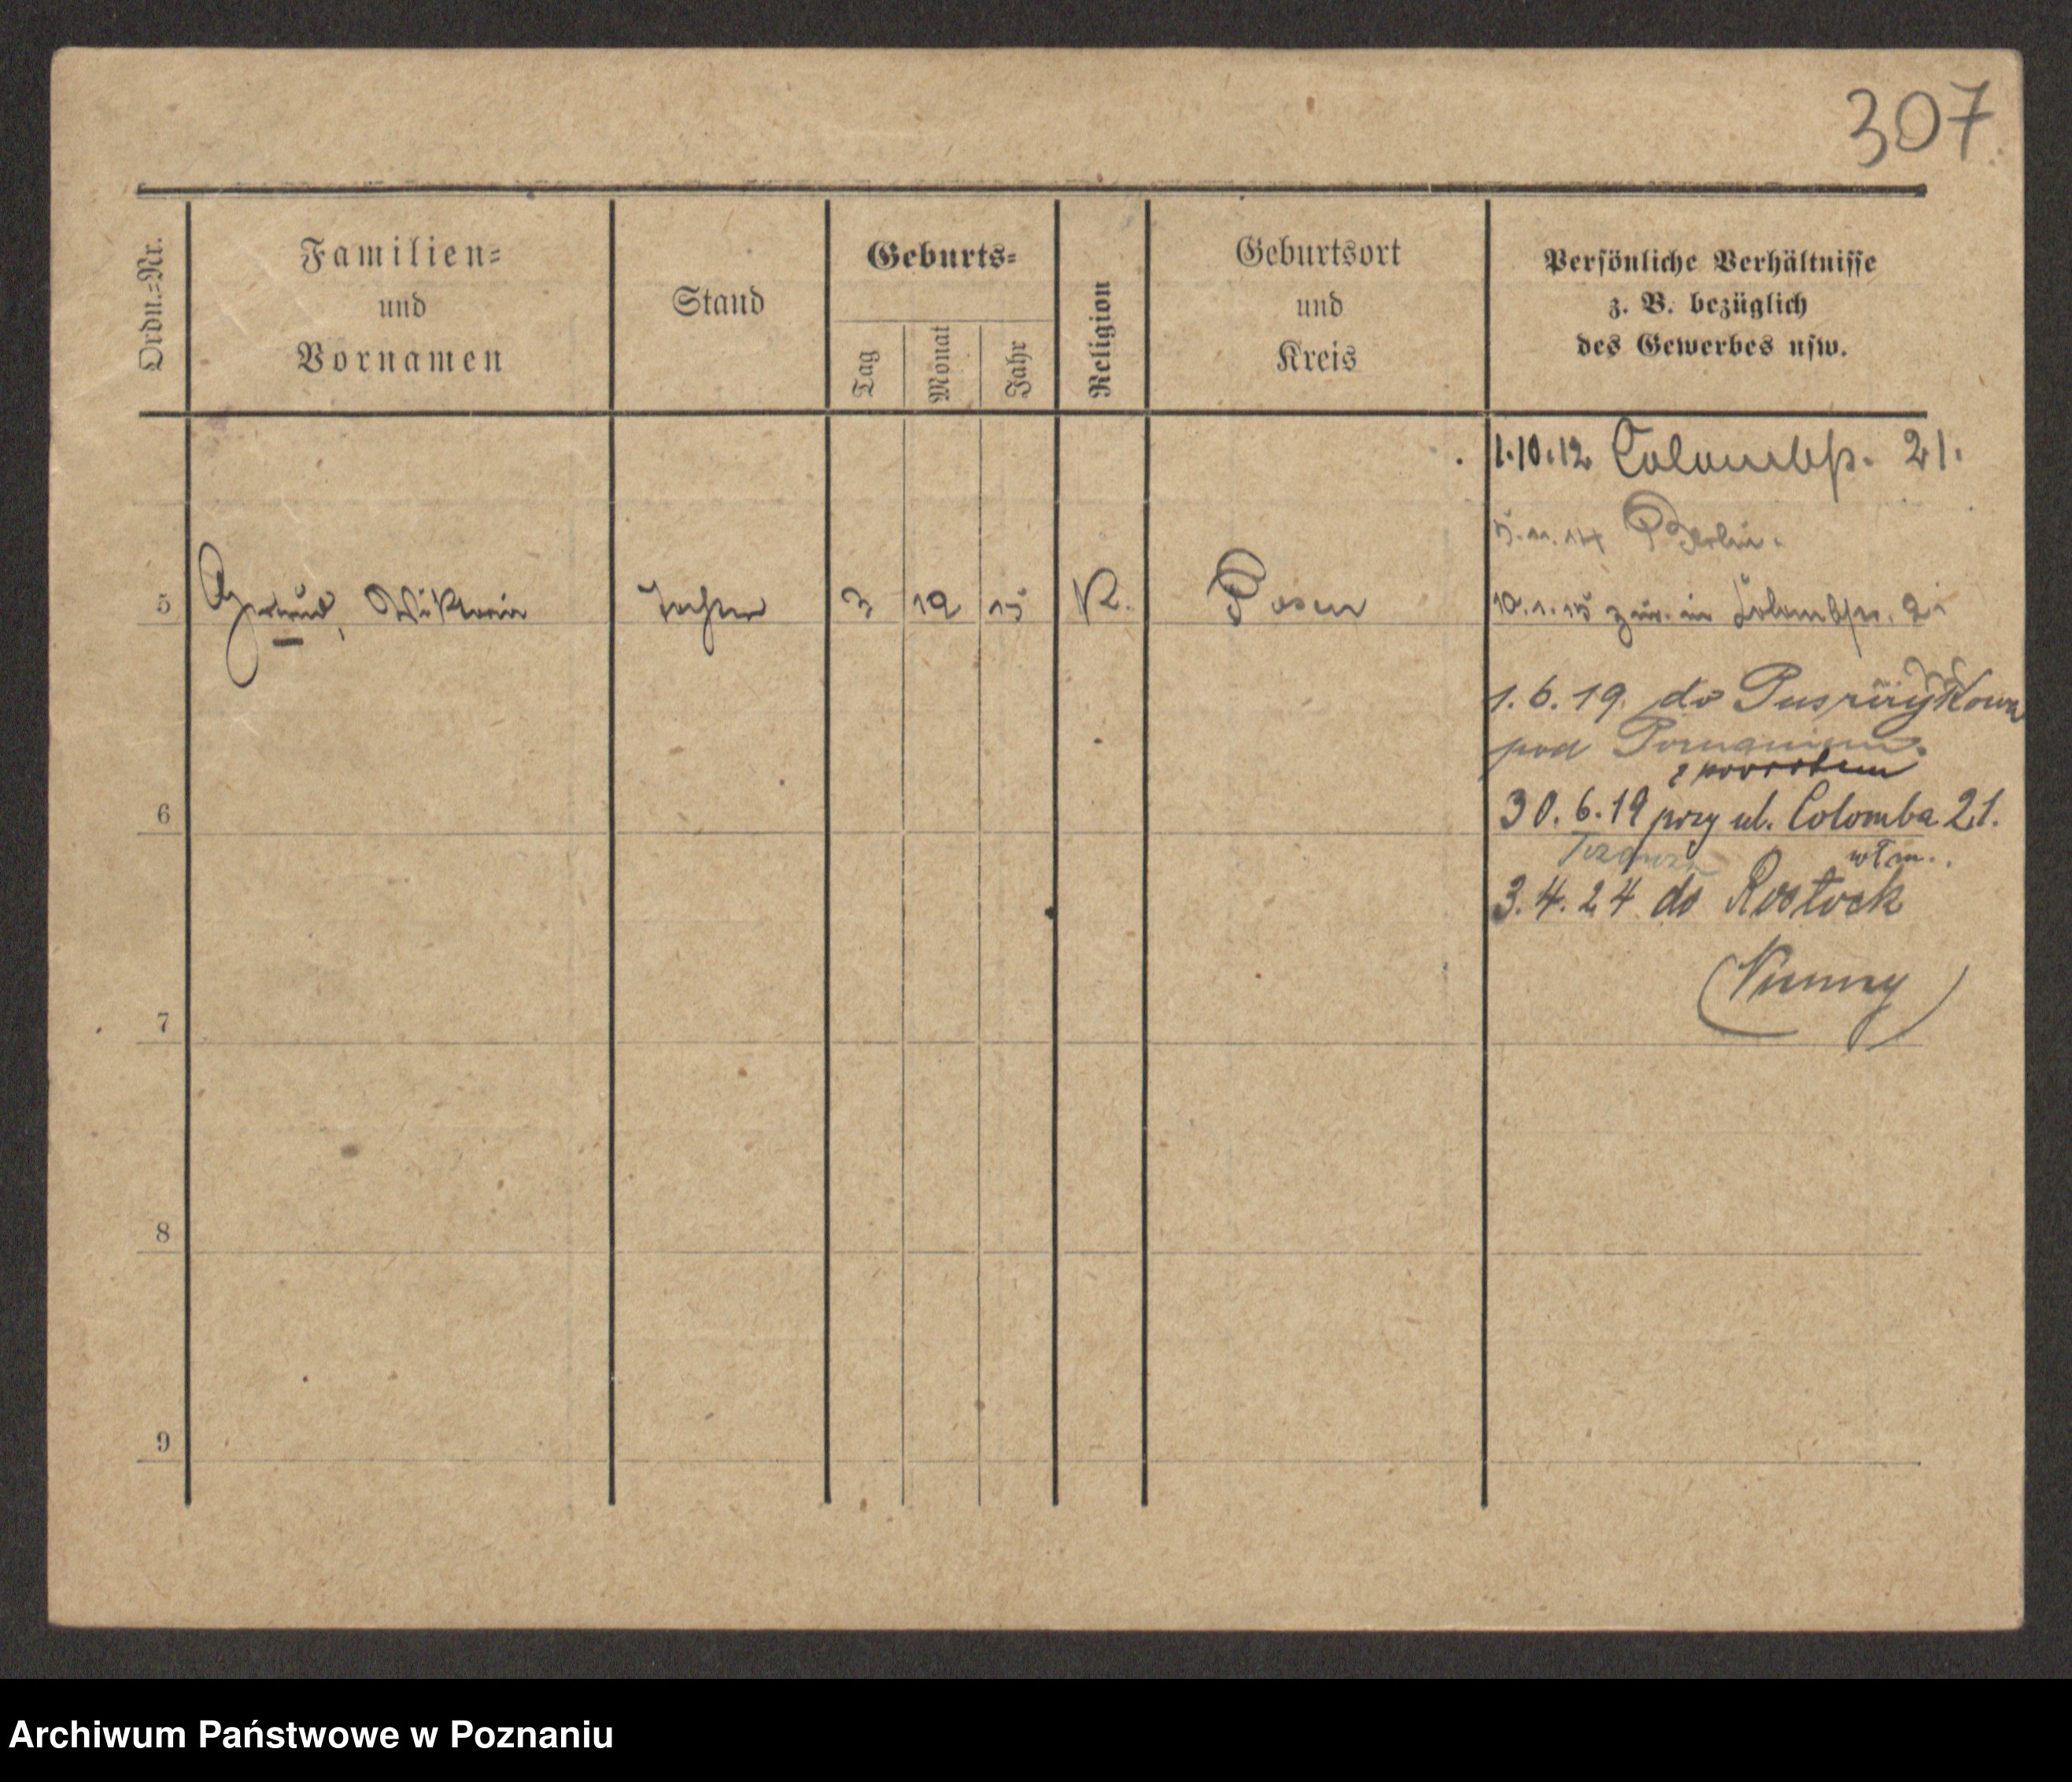 307
Ordn.=Nr.
Familien=
und
Vornamen
Stand
Geburts=
Tag
Monat
Jahr
Religion
Geburtsort
und
Kreis
Persönliche Verhältnisse
z. B. bezüglich
des Gewerbes usw.
1.10.12 Colombstr. 21.
5.11.14 Berlin.
5 Wiktoria Tochter 3 12 15 K. Posen
10.1.15 zur. in Colombstr. 21
1.6.19. do Puszczykowa
pod Poznaniem.
z powrotem
6
30.6.19 przy ul. Colomba 21.
3.4.24 do Rostock
(Niemcy)
7
8
9
Archiwum Państwowe w Poznaniu